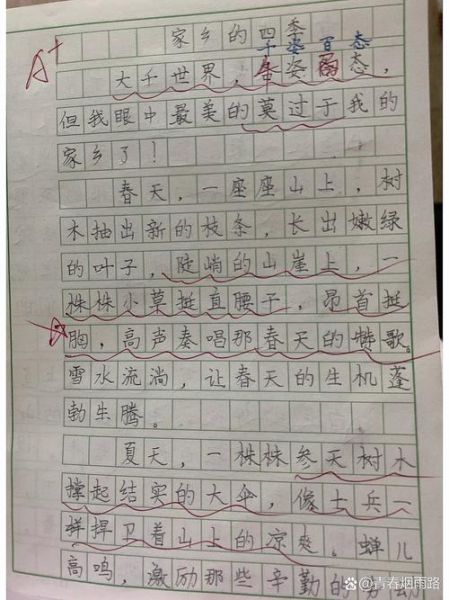 A+
家乡的四季
千姿百态
大千世界，千姿百态，
但我眼中最美的莫过于我的
家乡了！
春天，一座座山上，树
木抽出新的枝条，长出嫩绿
的叶子，陡峭的山崖上，一
株株小草挺直腰子，昂首挺
胸，高声奏唱那春天的赞歌。
雪水流淌，让春天的生机蓬
勃生腾。
夏天，一株株参天树木
撑起结实的大伞，像士兵一
样捍卫着山上的凉爽。蝉儿
高鸣，激励那些辛勤的劳动
@青春烟雨路